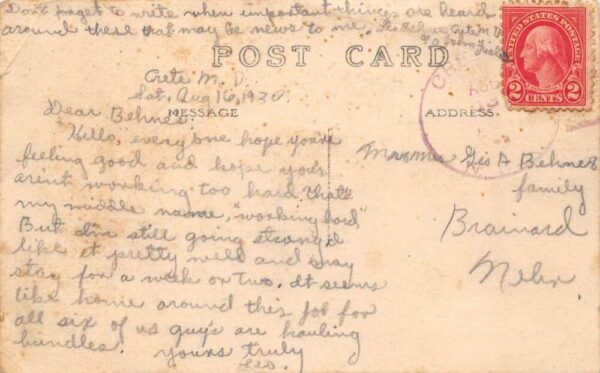 Don't forget to write when important things are heard
around there that may be news to me.
Crete N. D.
POST CARD
Crete N. D.
Sat, Aug 16, 1930
MESSAGE
Dear Behnes:
Hello, every one hope you're
feeling good and hope you's
aren't working too hard. that's
my middle name, "working hard"
But I'm still going strong, I
like it pretty well and may
stay for a week or two. It seems
like home around this job for
all six of us guys are hauling
bundles. Yours truly
Les.
ADDRESS
CRE
AUG
Mr Mrs Geo A Behne &
family
Brainard
Nebr.
UNITED STATES POSTAGE
WASHINGTON
2 CENTS 2